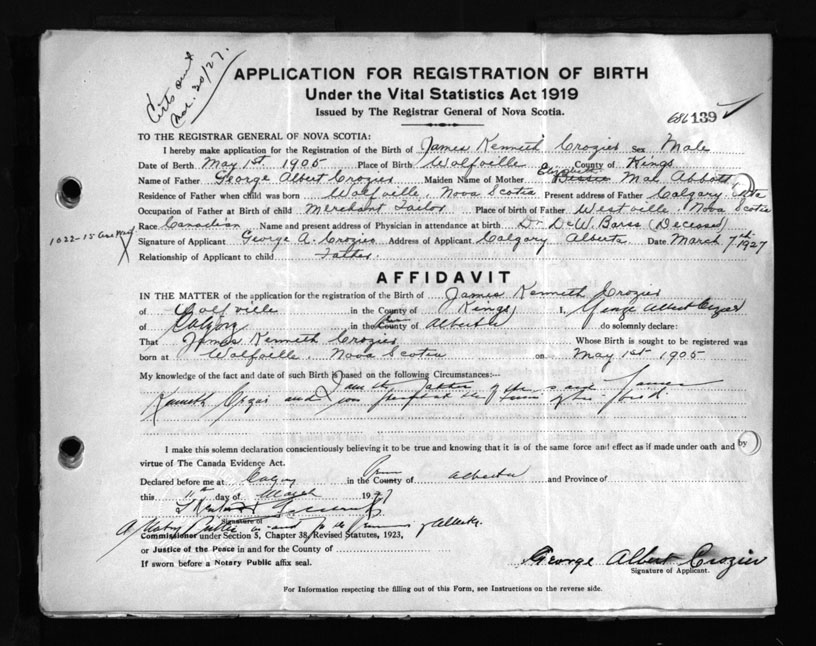 Nov. 30/27.
APPLICATION FOR REGISTRATION OF BIRTH
Under the Vital Statistics Act 1919
Issued by The Registrar General of Nova Scotia.
686139
TO THE REGISTRAR GENERAL OF NOVA SCOTIA:
I hereby make application for the Registration of the Birth of James Kenneth Crozier Sex Male
Date of Berth May 1st 1905 Place of Birth Wolfville County of Kings
Name of Father George Albert Crozier Maiden Name of Mother Elizabeth Bessie Mae Abbott
Residence of Father when child was born Wolfville, Nova Scotia Present address of Father Calgary Alta
Occupation of Father at Birth of child Merchant Tailor Place of birth of Father Westville, Nova Scotia
1022-15 Ave West
Race Canadian Name and present address of Physician in attendance at birth Dr DeW. Barss (Deceased)
Signature of Applicant George A. Crozier Address of Applicant Calgary Alberta Date March 7th 1927
Relationship of Applicant to child Father.
AFFIDAVIT
IN THE MATTER of the application for the registration of the Birth of James Kenneth Crozier
of Wolfville in the County of Kings I, George Albert Crozier
of Calgary in the County of Alberta do solemnly declare:
That James Kenneth Crozier Whose Birth is sought to be registered was
born at Wolfville, Nova Scotia on May 1st 1905
My knowledge of the fact and date of such Birth is based on the following Circumstances:—
I am the father of the said James
Kenneth Crozier and was present at the time of his birth.
I make this solemn declaration conscientiously believing it to be true and knowing that it is of the same force and effect as if made under oath and by
virtue of The Canada Evidence Act.
Declared before me at Calgary in the County of Alberta and Province of
this 11th day of March 1927
Signature of
A Notary Public in and for the Province of Alberta.
Commissioner under Section 5, Chapter 38, Revised Statutes, 1923,
or Justice of the Peace in and for the County of
If sworn before a Notary Public affix seal.
George Albert Crozier
Signature of Applicant.
For Information respecting the filling out of this Form, see Instructions on the reverse side.